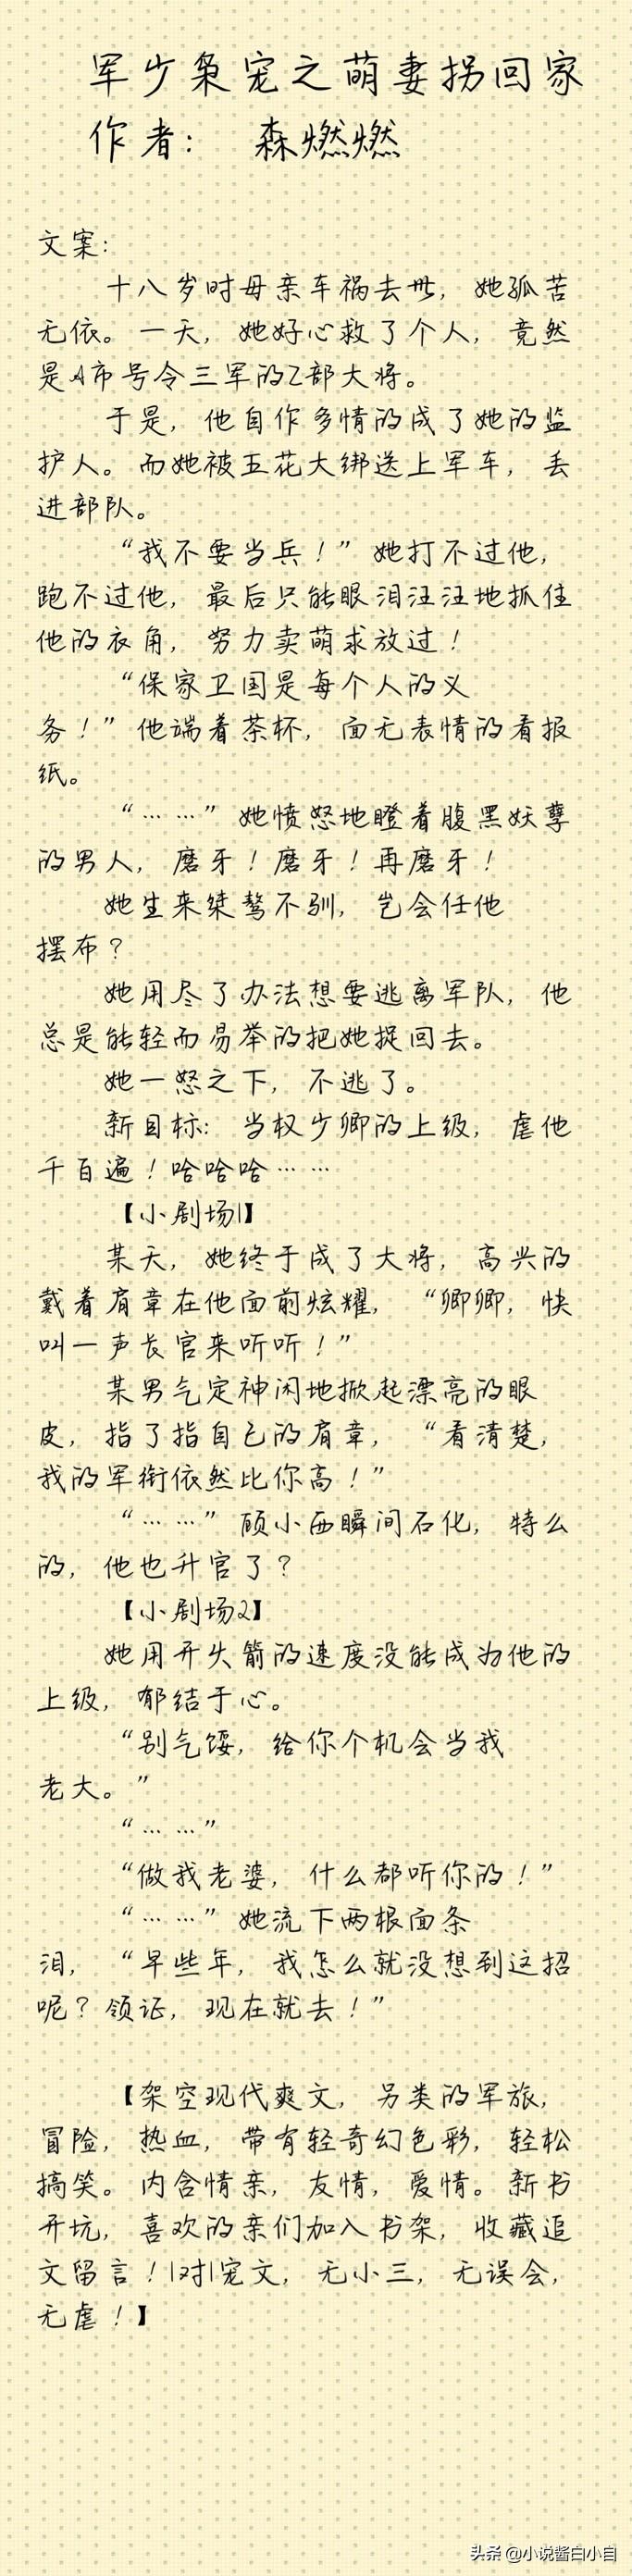 军少枭宠之萌妻拐回家
作者： 森燃燃
文案：
十八岁时母亲车祸去世，她孤苦
无依。一天，她好心救了个人，竟然
是A市号令三军的Z部大将。
于是，他自作多情的成了她的监
护人。而她被五花大绑送上军车，丢
进部队。
“我不要当兵！”她打不过他，
跑不过他，最后只能眼泪汪汪地抓住
他的衣角，努力卖萌求放过！
“保家卫国是每个人的义
务！”他端着茶杯，面无表情的看报
纸。
“……”她愤怒地瞪着腹黑妖孽
的男人，磨牙！磨牙！再磨牙！
她生来桀骜不驯，岂会任他
摆布？
她用尽了办法想要逃离军队，他
总是能轻而易举的把她捉回去。
她一怒之下，不逃了。
新目标：当权少卿的上级，虐他
千百遍！哈哈哈……
【小剧场1】
某天，她终于成了大将，高兴的
戴着肩章在他面前炫耀，“卿卿，快
叫一声长官来听听！”
某男气定神闲地掀起漂亮的眼
皮，指了指自己的肩章，“看清楚，
我的军衔依然比你高！”
“……”顾小西瞬间石化，特么
的，他也升官了？
【小剧场2】
她用开火箭的速度没能成为他的
上级，郁结于心。
“别气馁，给你个机会当我
老大。”
“……”
“做我老婆，什么都听你的！”
“……”她流下两根面条
泪，“早些年，我怎么就没想到这招
呢？领证，现在就去！”
【架空现代爽文，另类的军旅，
冒险，热血，带有轻奇幻色彩，轻松
搞笑。内含情亲，友情，爱情。新书
开坑，喜欢的亲们加入书架，收藏追
文留言！1对1宠文，无小三，无误会，
无虐！】
头条 @小说酱白小自